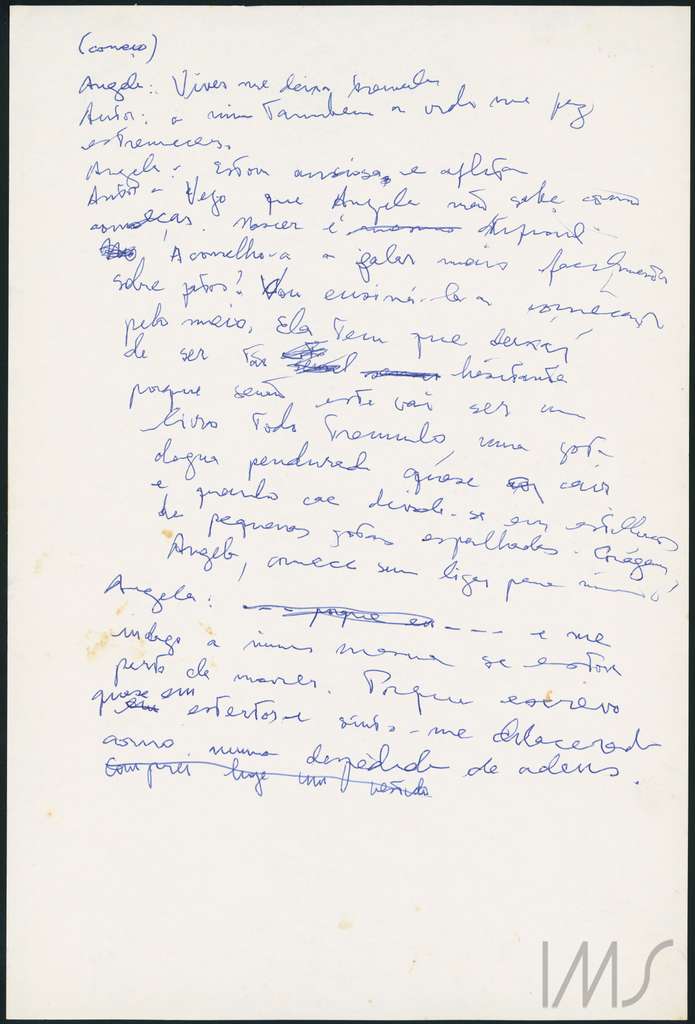 (começo)
Angela: Viver me deixa tremula
Autor: a mim Tambem a vida me faz
estremecer.
Angela: Estou ansiosa e aflita
Autor - Vejo que Angela não sabe como
começar. Nascer é difícil.
Aconselho-a a falar mais facilmente
sobre fatos? Vou ensiná-la a começar
pelo meio. Ela Tem que deixar
de ser Tão hesitante
porque senão este vai ser um
livro Todo Tremulo, uma gota
dagua pendurada quase a cair
e quando cae divide-se em estilhaços
de pequenas gotas espalhadas. Coragem,
Angela, comece sem ligar para nada!
Angela: - - - porque eu - - - - e me
indago a mim mesma se estou
perto de morrer. Porque escrevo
quase em estertor e sinto-me dilacerada
como numa despedida de adeus.
Comprei hoje um vestido
IMS